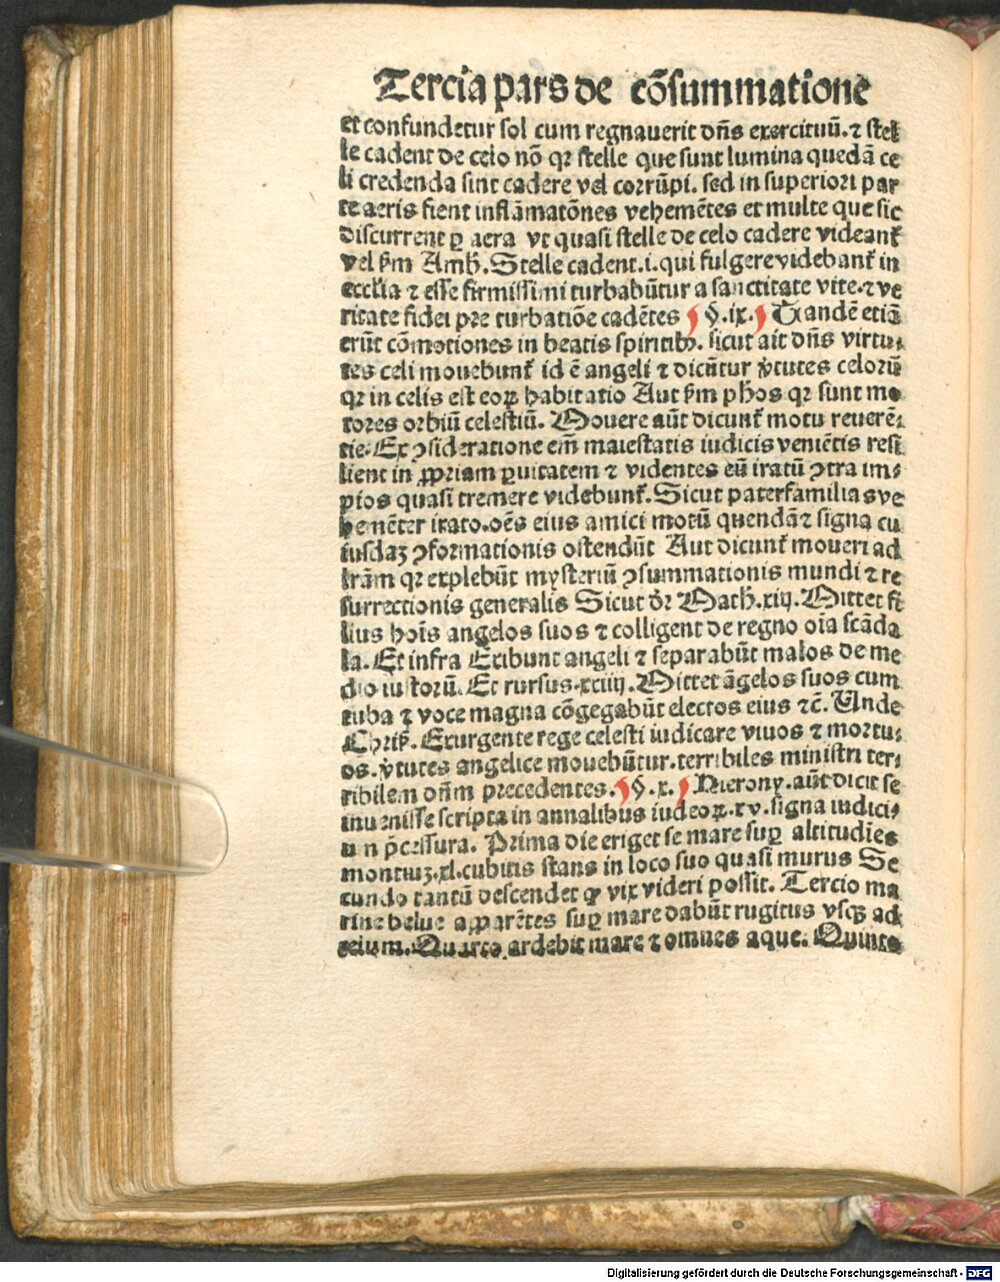 Tercia pars de cõsummatione
et confundetur sol cum regnauerit dñs exercituũ. ⁊ stel
le cadent de celo nõ qꝛ stelle que sunt lumina quedã ce
li credenda sint cadere vel corrũpi. sed in superiori par
te aeris fient inflãmatões vehemẽtes et multe que sic
discurrent ꝑ aera vt quasi stelle de celo cadere videant̃
vel ẜm Amb̃. Stelle cadent .i. qui fulgere videbant̃ in
ecclia ⁊ esse firmissimi turbabũtur a sanctitate vite. ⁊ ve
ritate fidei pre turbatiõe cadẽtes §. ix. Tandẽ etiã
erũt cõmotiones in beatis spiritibꝰ. sicut ait dñs virtu⸗
tes celi mouebunt̃ id ẽ angeli ⁊ dicũtur v̓tutes celorũ
qꝛ in celis est eoꝝ habitatio Aut ẜm pħos qꝛ sunt mo
tores orbiũ celestiũ. Mouere aũt dicunt̃ motu reuerẽ⸗
tie. Ex ꝯsideratione em̃ maiestatis iudicis veniẽtis resi
lient in ꝓpriam ꝑuitatem ⁊ videntes eũ iratũ ꝯtra im⸗
pios quasi tremere videbunt̃. Sicut paterfamilias ve
hemẽter irato. oẽs eius amici motũ quendã ⁊ signa cu
iusdaꝫ ꝯformationis ostendũt Aut dicunt̃ moueri ad
lr̃am qꝛ explebũt mysteriũ ꝯsummationis mundi ⁊ re
surrectionis generalis Sicut dr̃ Math̃. xiij. Mittet fi
lius hoĩs angelos suos ⁊ colligent de regno oĩa scãda
la. Et infra Exibunt angeli ⁊ separabũt malos de me
dio iustorũ. Et rursus. xxiiij. Mittet ãgelos suos cum
tuba ⁊ voce magna cõgegabũt electos eius ⁊c̃. Unde
Chriſ̃. Exurgente rege celesti iudicare viuos ⁊ mortu⸗
os. v̓tutes angelice mouebũtur. terribiles ministri ter⸗
ribilem dñm precedentes. §. x. Hierony. aũt dicit se
inuenisse scripta in annalibus iudeoꝝ. xv. signa iudici⸗
u n p̃cessura. Prima die eriget se mare suꝑ altitudĩes
montiuꝫ. xl. cubitis stans in loco suo quasi murus Se
cundo tantũ descendet ꝙ vix videri possit. Tercio ma
rine belue apparẽtes suꝑ mare dabũt rugitus vsqꝫ ad
celum. Quarto ardebit mare ⁊ omnes aque. Quinto
Digitalisierung gefördert durch die Deutsche Forschungsgemeinschaft - DFG